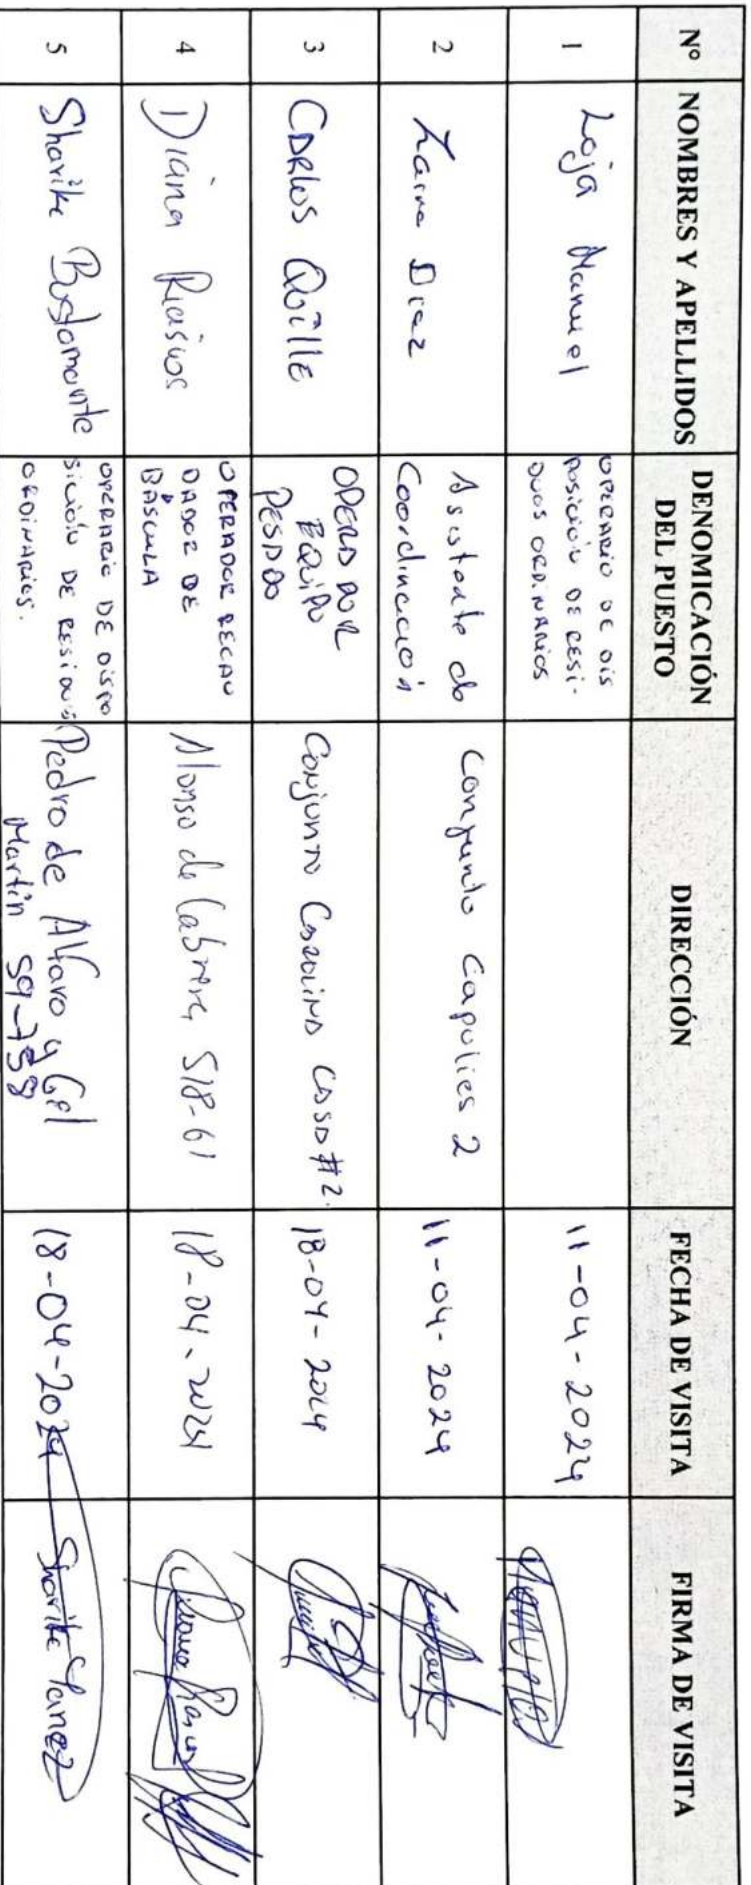 Nº NOMBRES Y APELLIDOS DENOMICACIÓN DEL PUESTO DIRECCIÓN FECHA DE VISITA FIRMA DE VISITA
1 Loja Manuel OPERARIO DE DIS
POSICIÓN DE RESI-
DUOS ORDINARIOS 11-04-2024
2 Diaz Asistente de
Coordinación Conjunto Capulies 2 11-04-2024
3 CARLOS QUILLE OPERADOR
EQUIPO
PESADO CONJUNTO CAROLINA CASA #2. 18-04-2024
4 Diana Riasios OPERADOR RECAU
DADOR DE
BÁSCULA Alonso de Cabrera 518-61 18-04-2024
5 Sharike Bustamante OPERARIO DE DISPO
SICIÓN DE RESIDUOS
ORDINARIOS. Pedro de Alfaro y Gel
Martín 59-758 18-04-2024 Sharike Yanez